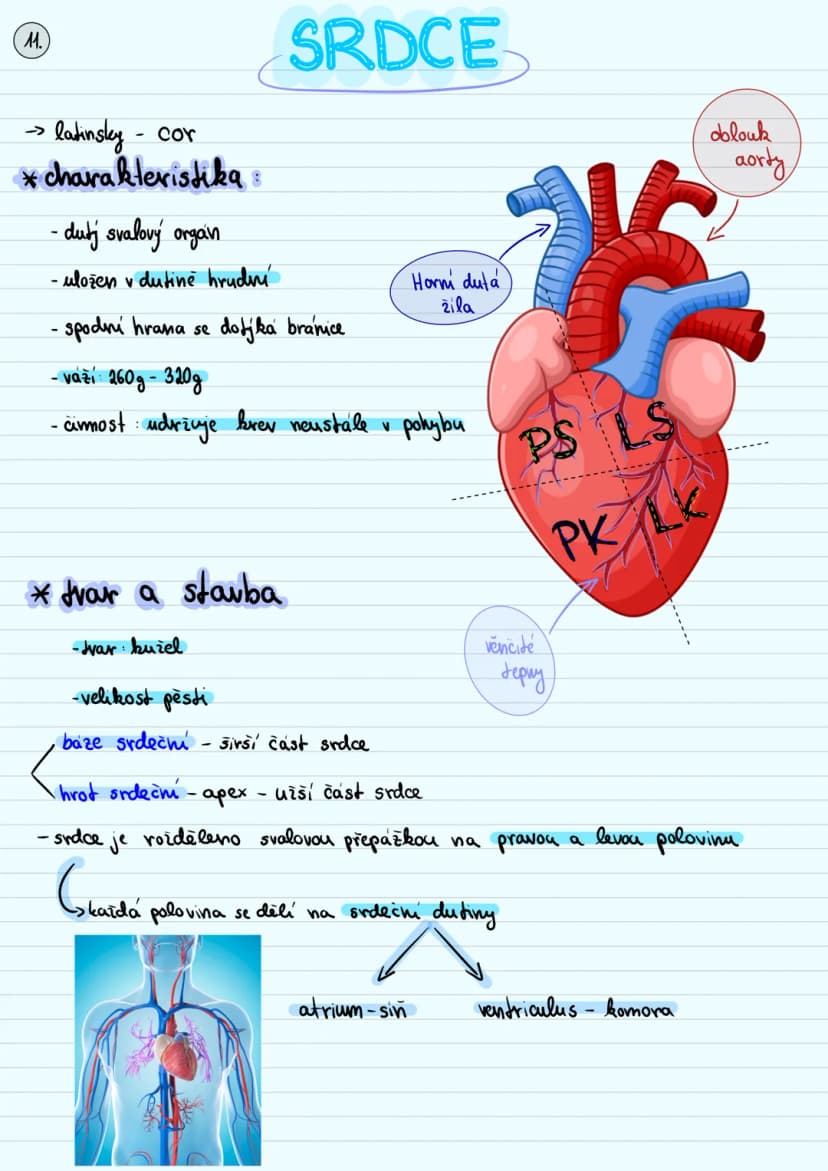 11.
SRDCE
→ latinsky - cor
* charakteristika :
- dutý svalový orgán
- uložen v dutině hrudní
- spodní hrana se dotýká bránice
- váží: 260g - 320g
- činnost : udržuje krev neustále v pohybu
oblouk
aorty
Horní dutá
žíla
PS LS
PK LK
věnčité
tepny
* tvar a stavba
- tvar : kužel
- velikost pěsti
báze srdeční - širší část srdce
hrot srdeční - apex - užší část srdce
- srdce je rozděleno svalovou přepážkou na pravou a levou polovinu
→ každá polovina se dělí na srdeční dutiny
atrium - síň
ventriculus - komora